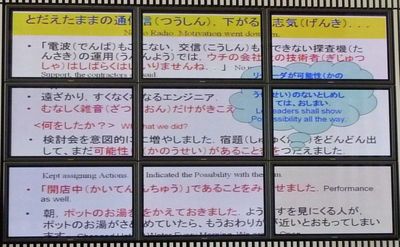 とだえたままの通信(つうしん), 下がる士気(げんき)...
No Radio, Motivation went down...
「電波(でんぱ)もこない, 交信(こうしん)もできない探査機(たんさき)の運用(うんよう)では, ウチの会社の技術者(ぎじゅつしゃ)はしばらくはいりませんね...」 No
Support, the contractors said.
リーダが可能性(かのうせい)のないとしめしては, おしまい.
Leaders shall show
Possibility all the way.
遠ざかり, すくなくなるエンジニア.
むなしく雑音(ざつおん)だけがきこえ
<何をしたか?> What we did?
検討会を意図的に増やしました. 宿題(しゅくだい)をどんどん出して, まだ可能性(かのうせい)があることをつたえました.
Kept assigning Actions. Indicated the Possibility with them.
「開店中(かいてんちゅう)」であることをみせました. Performance as well.
朝, ポットのお湯をかえておきました. ようすを見にくる人が, ポットのお湯がさめていたら, もうおわりが近いとおもってしまいます.